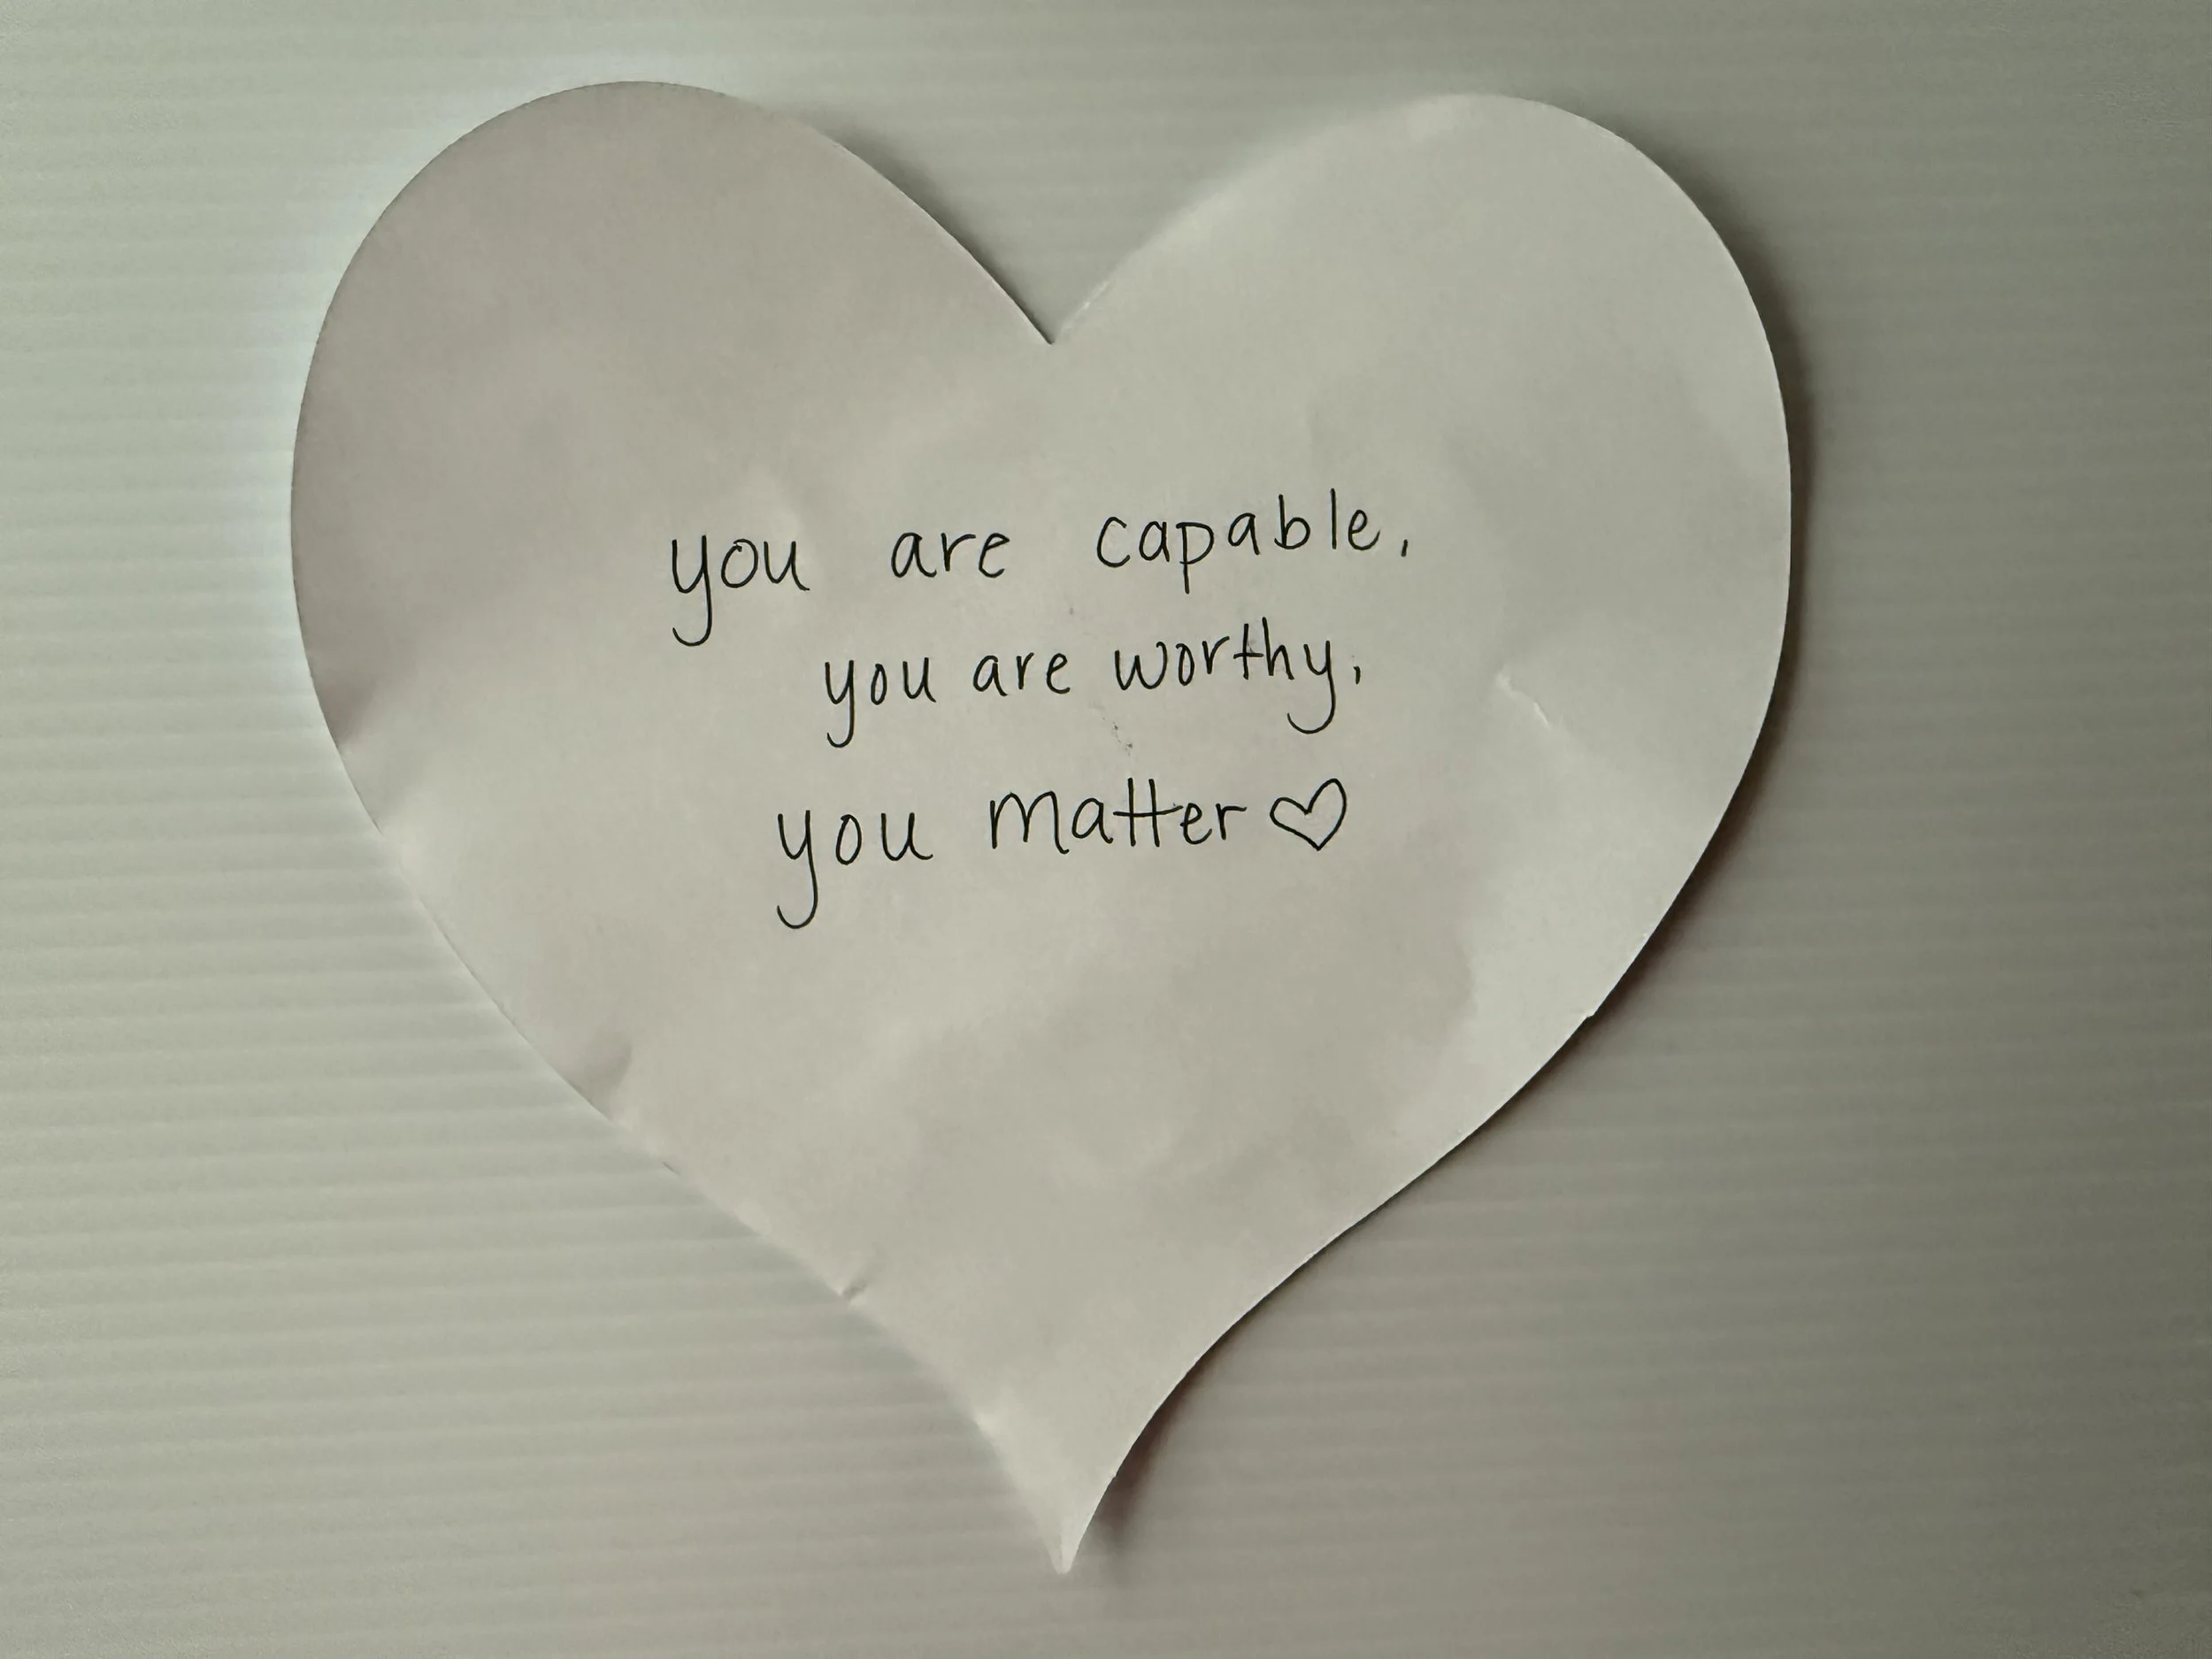 you are capable,
you are worthy,
you matter ♡